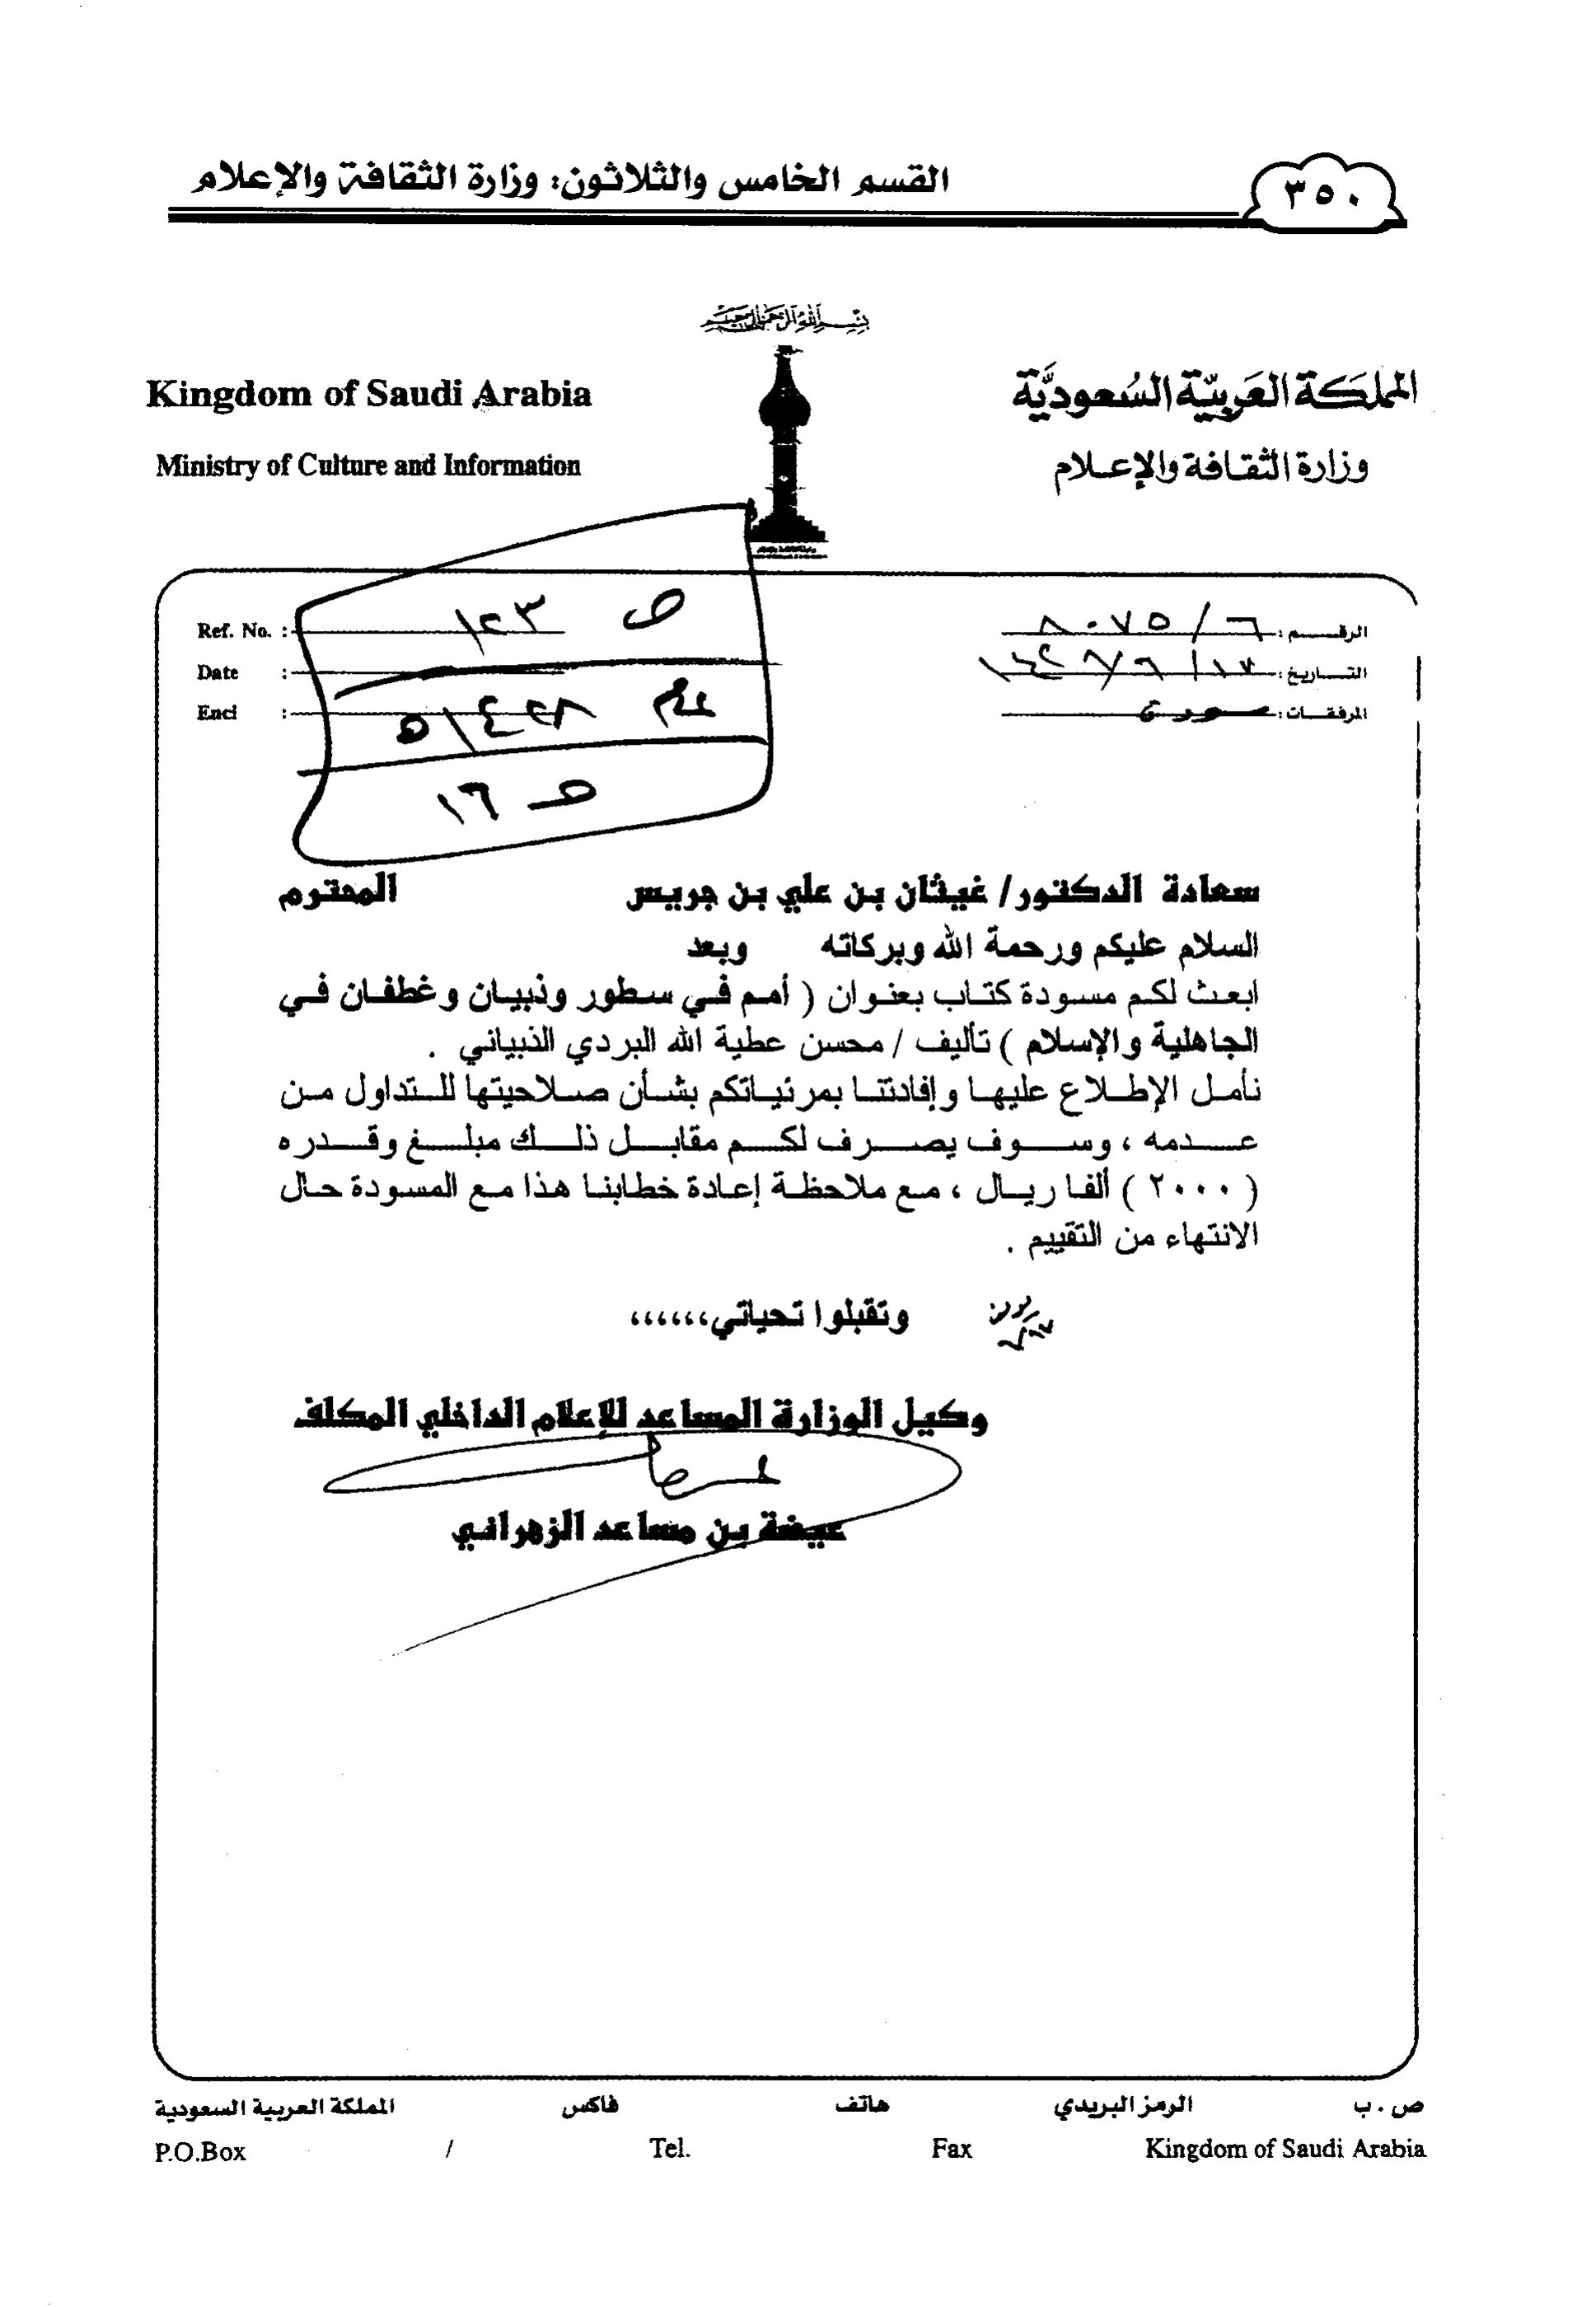 ٣٥٠
القسم الخامس والثلاثون: وزارة الثقافة والإعلام
بسم الله الرحمن الرحيم
المملكة العربية السعودية
Kingdom of Saudi Arabia
وزارة الثقافة والإعلام
Ministry of Culture and Information
الرقم: ٨٠٧٥/٦
Ref. No. :
ص ١٢٣
التاريخ:
Date :
المرفقات:
Encl :
٥/٤٢٨
١٦
سعادة الدكتور/ غيثان بن علي بن جريس المحترم
السلام عليكم ورحمة الله وبركاته وبعد
ابعث لكم مسودة كتاب بعنوان ( أمم في سطور وذبيان وغطفان في
الجاهلية والإسلام ) تأليف / محسن عطية الله البردي الذبياني .
نأمل الإطلاع عليها وإفادتنا بمرئياتكم بشأن صلاحيتها للتداول من
عدمه ، وسوف يصرف لكم مقابل ذلك مبلغ وقدره
( ٢٠٠٠ ) ألفا ريال ، مع ملاحظة إعادة خطابنا هذا مع المسودة حال
الانتهاء من التقييم .
وتقبلوا تحياتي،،،،،،
وكيل الوزارة المساعد للإعلام الداخلي المكلف
عيضة بن مساعد الزهراني
ص . ب الرمز البريدي هاتف فاكس المملكة العربية السعودية
P.O.Box / Tel. Fax Kingdom of Saudi Arabia